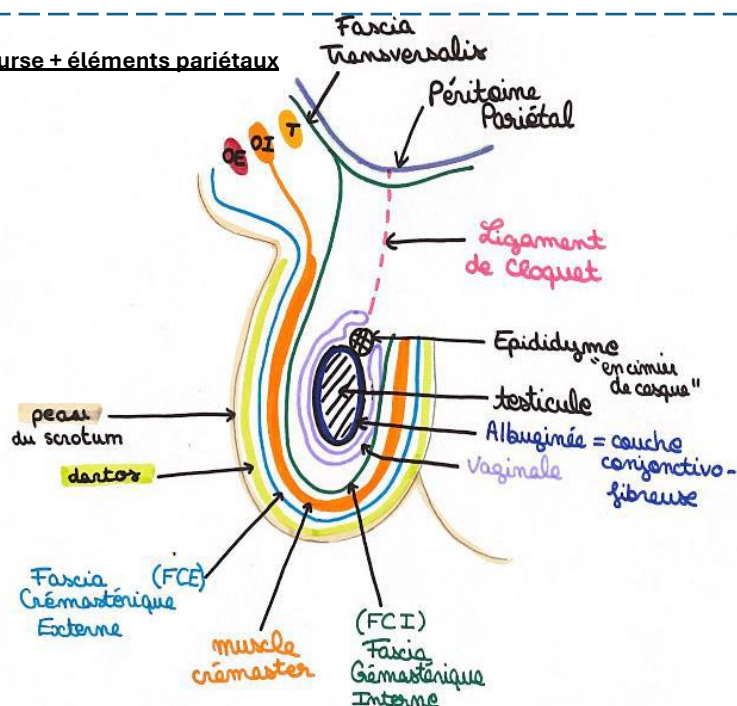 urse + éléments pariétaux
Fascia
Transversalis
Péritoine
Pariétal
OE
OI
T
Ligament
de Cloquet
Epididyme
"en cimier
de casque"
testicule
Albuginée = couche
conjonctivo-
fibreuse
Vaginale
peau
du scrotum
dartos
Fascia (FCE)
Crémastérique
Externe
muscle
crémaster
(FCI)
Fascia
Crémastérique
Interne